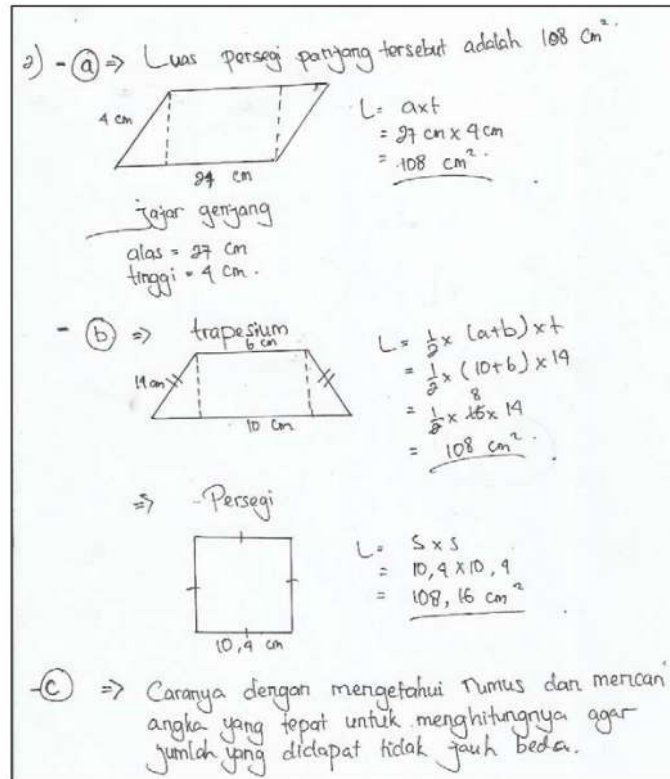 2) - a => Luas persegi panjang tersebut adalah 108 cm².
4 cm
27 cm
L = a x t
= 27 cm x 4 cm
= 108 cm².
jajar genjang
alas = 27 cm
tinggi = 4 cm.
- b => trapesium
6 cm
14 cm
10 cm
L = 1/2 x (a+b) x t
= 1/2 x (10+6) x 14
8
= 1/2 x 16 x 14
= 108 cm².
=> - Persegi
10,4 cm
L = S x S
= 10,4 x 10,4
= 108,16 cm²
- c => Caranya dengan mengetahui rumus dan mencari
angka yang tepat untuk menghitungnya agar
jumlah yang didapat tidak jauh beda.